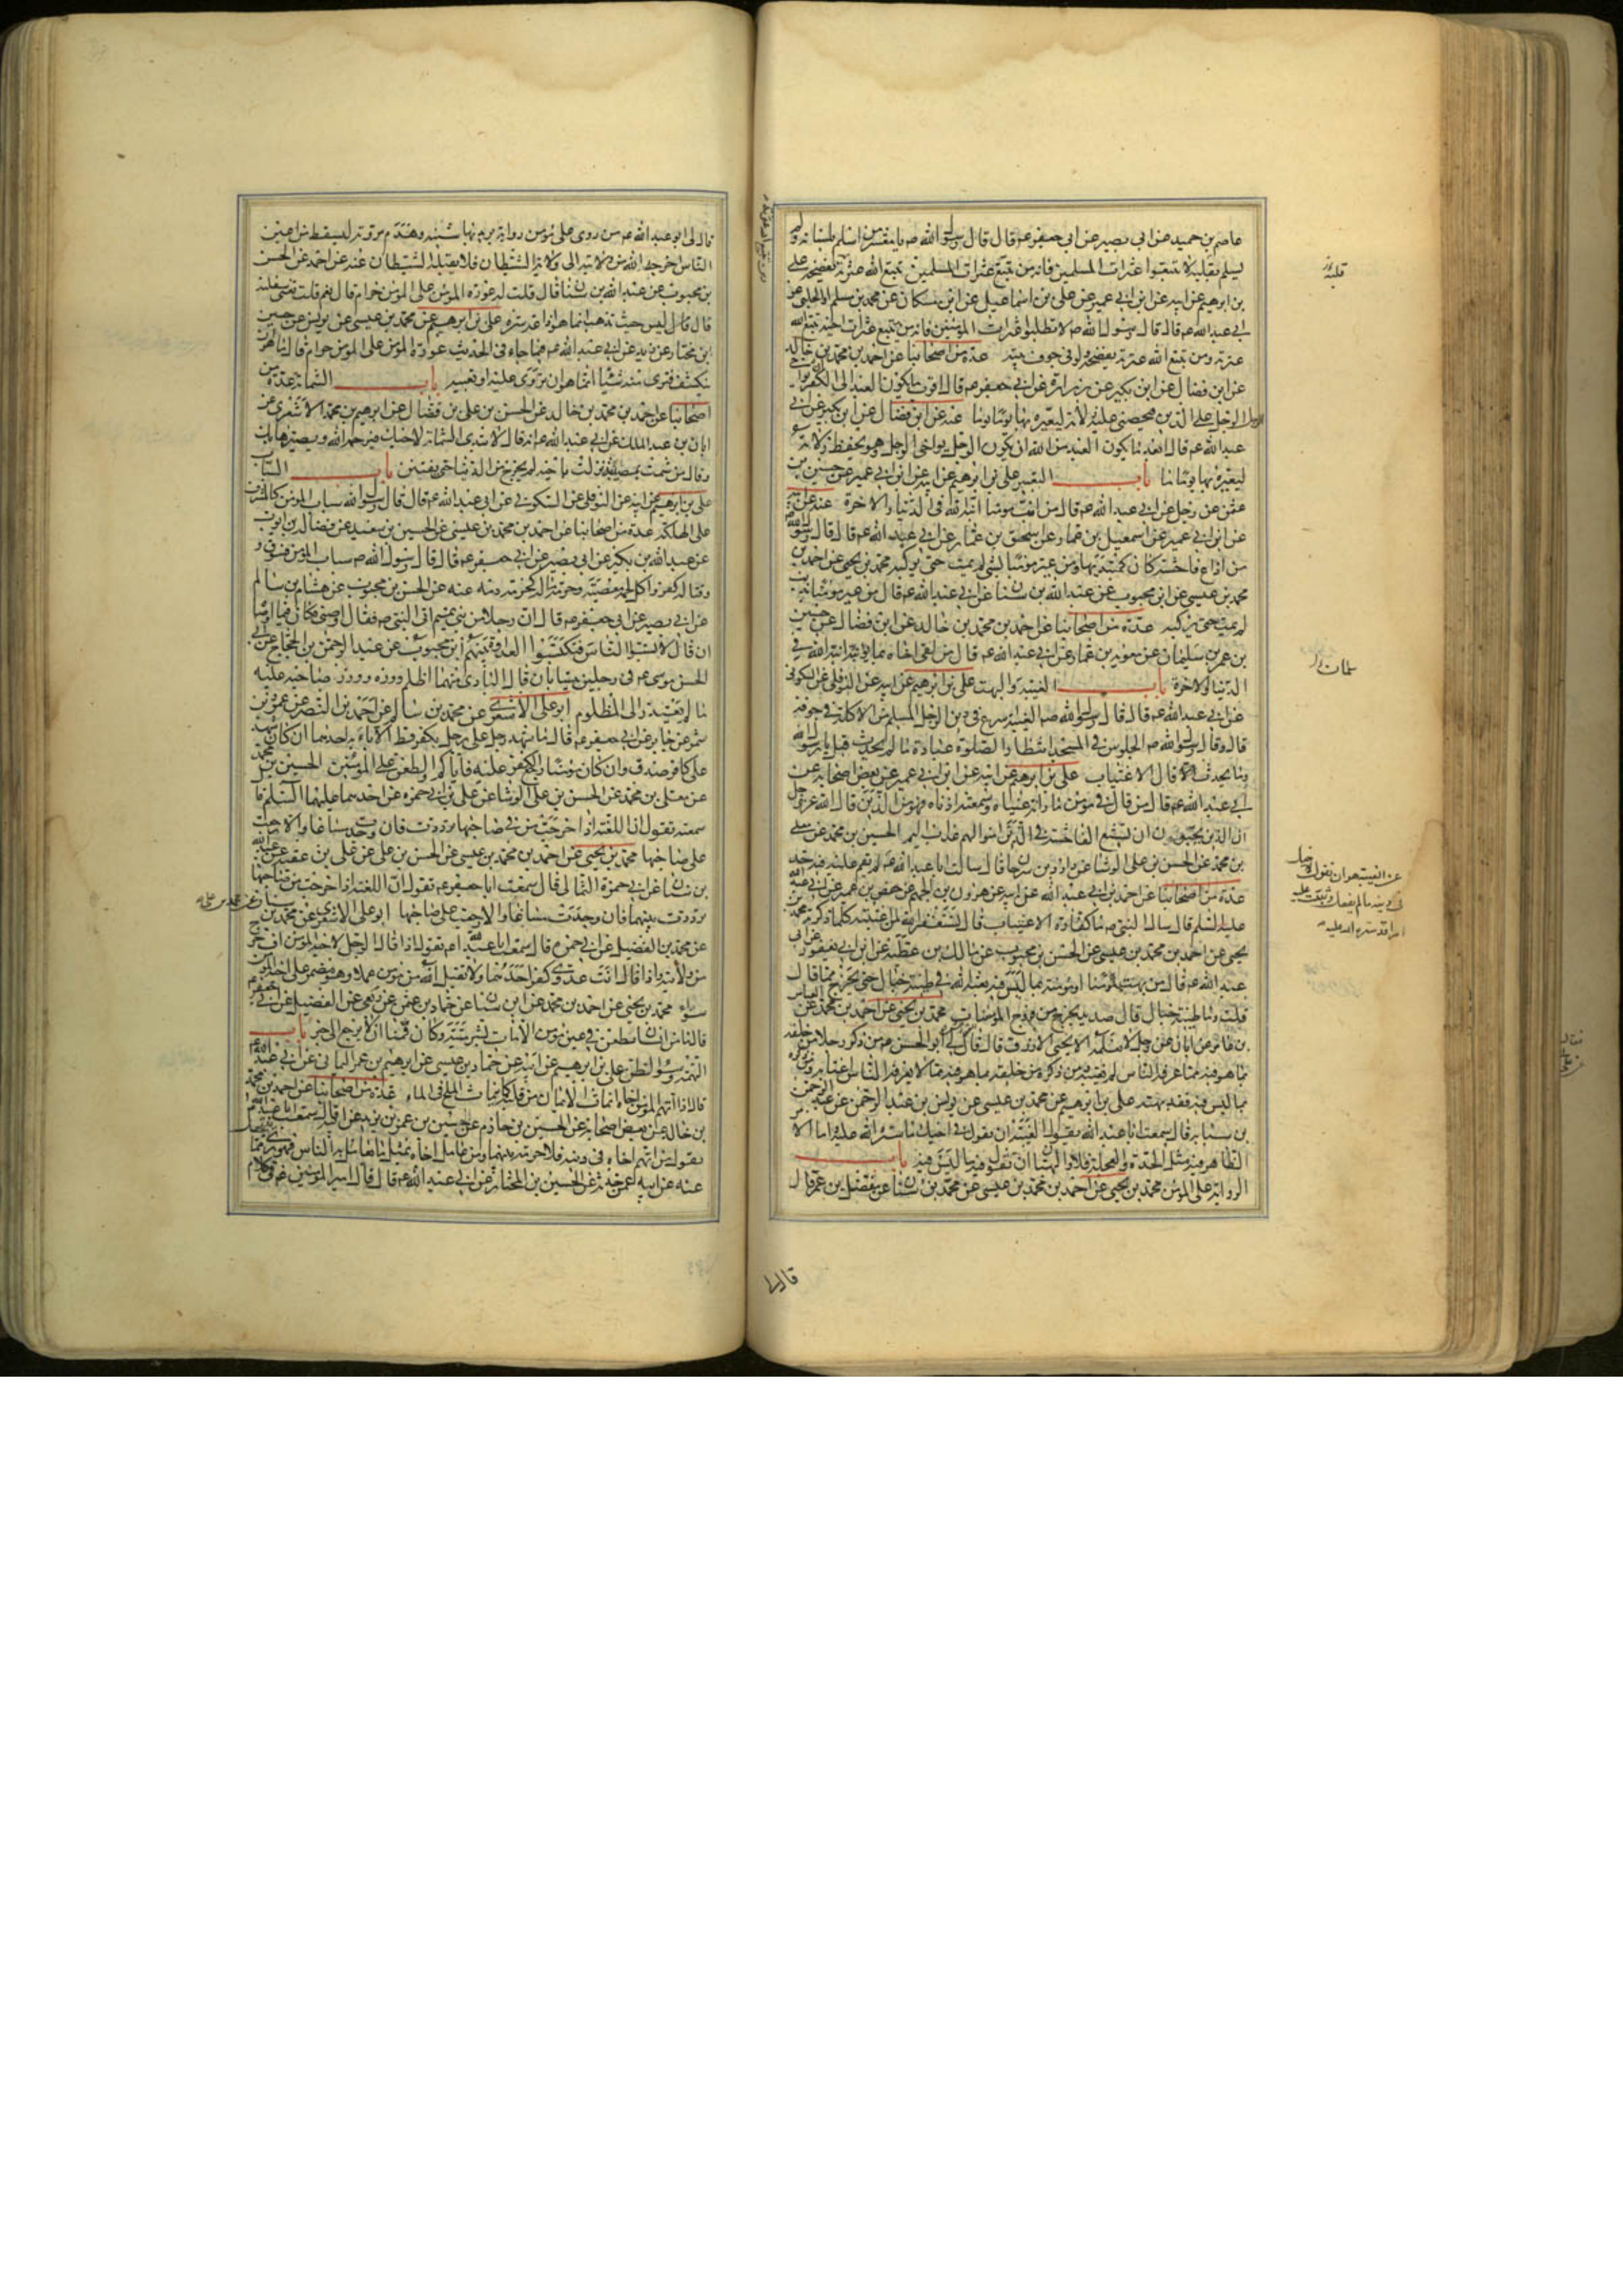 عاصم بن حميد عن ابي بصير عن ابي جعفر عم قال قال رسول الله ص يا معشر من اسلم بلسانه ولم
يسلم بقلبه لا تتبعوا عثرات المسلمين فانه من تتبع عثرات المسلمين تتبع الله عثرته يفضحه علي
بن ابرهيم عن ابيه عن ابن ابي عمير عن علي بن اسماعيل عن ابن مسكان عن محمد بن مسلم او الحلبي عن
ابي عبد الله عم قال قال رسول الله ص لا تطلبوا عثرات المؤمنين فانه من تتبع عثرات اخيه تتبع الله
عثرته ومن تتبع الله عثرته يفضحه ولو في جوف بيته عدة من اصحابنا عن احمد بن محمد بن خالد
عن ابن فضال عن ابن بكير عن زرارة عن ابي جعفر عم قال اقرب ما يكون العبد الى الكفر ان
يواخي الرجل الرجل على الدين فيحصي عليه زلاته ليعيره بها يوما ما عنه عن ابن فضال عن ابن بكير عن ابي
عبد الله عم قال ابعد ما يكون العبد من الله ان يكون الرجل يواخي الرجل وهو يحفظ زلاته
ليعيره بها يوما ما باب التعيير علي بن ابرهيم عن ابيه عن ابن ابي عمير عن حسين بن
عثمن عن رجل عن ابي عبد الله عم قال من انب مؤمنا انبه الله في الدنيا والاخرة عنه عن ابيه
عن ابن ابي عمير عن اسمعيل بن عمار عن اسحق بن عمار عن ابي عبد الله عم قال قال رسول الله ص
من اذاع فاحشة كان كمبتديها ومن عير مؤمنا بشي لم يمت حتى يركبه محمد بن يحيى عن احمد بن
محمد بن عيسى عن ابن محبوب عن عبد الله بن سنان عن ابي عبد الله عم قال من عير مؤمنا بذنب
لم يمت حتى يركبه عدة من اصحابنا عن احمد بن محمد بن خالد عن ابن فضال عن حسين
بن عمر بن سليمان عن معوية بن عمار عن ابي عبد الله عم قال من لقي اخاه بما يؤنبه انبه الله في
الدنيا والاخرة باب الغيبة والبهت علي بن ابرهيم عن ابيه عن النوفلي عن السكوني
عن ابي عبد الله عم قال قال رسول الله ص الغيبة اسرع في دين الرجل المسلم من الاكلة في جوفه
قال وقال رسول الله ص الجلوس في المسجد انتظار الصلوة عبادة ما لم يحدث قيل يا رسول الله
وما يحدث قال الاغتياب علي بن ابرهيم عن ابيه عن ابن ابي عمير عن بعض اصحابه عن
ابي عبد الله عم قال من قال في مؤمن ما راته عيناه وسمعته اذناه فهو من الذين قال الله عز وجل
ان الذين يحبون ان تشيع الفاحشة في الذين امنوا لهم عذاب اليم الحسين بن محمد عن معلى
بن محمد عن الحسن بن علي الوشا عن داود بن سرحان قال سالت ابا عبد الله عم
عدة من اصحابنا عن احمد بن ابي عبد الله عن ابيه عن هرون بن الجهم عن حفص بن عمر عن ابي عبد الله
عليه السلم قال سال النبي ص ما كفارة الاغتياب قال تستغفر الله لمن اغتبته كلما ذكرته محمد بن
يحيى عن احمد بن محمد بن عيسى عن الحسن بن محبوب عن مالك بن عطية عن ابن ابي يعفور عن ابي
عبد الله عم قال من بهت مؤمنا او مؤمنة بما ليس فيه بعثه الله في طينة خبال حتى يخرج مما قال
قلت وما طينة خبال قال صديد يخرج من فروج المومسات محمد بن يحيى عن احمد بن محمد عن العباس
بن عامر عن ابان عن رجل لا نعلمه الا يحيى الازرق قال قال لي ابو الحسن عم من ذكر رجلا من خلفه
بما هو فيه مما عرفه الناس لم يغتبه ومن ذكره من خلفه بما هو فيه مما لا يعرفه الناس اغتابه ومن ذكره
بما ليس فيه فقد بهته علي بن ابرهيم عن محمد بن عيسى عن يونس بن عبد الرحمن عن عبد الرحمن
بن سيابه قال سمعت ابا عبد الله يقول الغيبة ان تقول في اخيك ما ستره الله عليه واما الامر
الظاهر فيه مثل الحدة والعجلة فلا والبهتان ان تقول فيه ما ليس فيه باب
الرواية على المؤمن محمد بن يحيى عن احمد بن محمد بن عيسى عن محمد بن سنان عن مفضل بن عمر قال
قال لي
عن الغيبة قال هو ان تقول لاخيك
في دينه ما لم يفعل وتثبت عليه
امرا قد ستره الله عليه
قال لي ابو عبد الله عم من روى على مؤمن رواية يريد بها شينه وهدم مروته ليسقط من اعين
الناس اخرجه الله من ولايته الى ولاية الشيطان فلا يقبله الشيطان عنه عن احمد عن الحسن
بن محبوب عن عبد الله بن سنان قال قلت له عورة المؤمن على المؤمن حرام قال نعم قلت تعني سفليه
قال قال ليس حيث تذهب انما هو اذاعة سره علي بن ابرهيم عن محمد بن عيسى عن يونس عن حسين
بن مختار عن زيد عن ابي عبد الله عم فيما جاء في الحديث عورة المؤمن على المؤمن حرام قال ما هو ان
ينكشف فترى منه شيئا انما هو ان تروي عليه او تعيبه باب الشماتة عدة من
اصحابنا عن احمد بن محمد بن خالد عن الحسن بن علي بن فضال عن ابرهيم بن محمد الاشعري عن
ابان بن عبد الملك عن ابي عبد الله عم انه قال لا تبدي الشماتة لاخيك فيرحمه الله ويصيرها بك
وقال من شمت بمصيبة نزلت باخيه لم يخرج من الدنيا حتى يفتتن باب السباب
علي بن ابرهيم عن ابيه عن النوفلي عن السكوني عن ابي عبد الله عم قال قال رسول الله سباب المؤمن كالمشرف
على الهلكة عدة من اصحابنا عن احمد بن محمد بن عيسى عن الحسين بن سعيد عن فضالة بن ايوب
عن عبد الله بن بكير عن ابي بصير عن ابي جعفر عم قال قال رسول الله ص سباب المؤمن فسوق و
وقتاله كفر واكل لحمه معصية وحرمة ماله كحرمة دمه عنه عن الحسن بن محبوب عن هشام بن سالم
عن ابي بصير عن ابي جعفر عم قال ان رجلا من بني تميم اتى النبي ص فقال اوصني فكان فيما اوصاه
ان قال لا تسبوا الناس فتكتسبوا العداوة بينهم ابن محبوب عن عبد الرحمن بن الحجاج عن ابي
الحسن موسى عم في رجلين يتسابان قال البادي منهما اظلم ووزره ووزر صاحبه عليه
ما لم يعتذر الى المظلوم ابو علي الاشعري عن محمد بن سالم عن احمد بن النضر عن عمرو بن
شمر عن جابر عن ابي جعفر عم قال ما شهد رجل على رجل بكفر قط الا باء به احدهما ان كان شهد
على كافر صدق وان كان مؤمنا رجع الكفر عليه فاياكم والطعن على المؤمنين الحسين بن محمد
عن معلى بن محمد عن الحسن بن علي الوشا عن علي بن ابي حمزه عن احدهما عليهما السلم قال
سمعته يقول ان اللعنة اذا خرجت من في صاحبها ترددت فان وجدت مساغا والا رجعت
على صاحبها محمد بن يحيى عن احمد بن محمد بن عيسى عن الحسن بن علي عن علي بن عقبة عن عبد الله
بن سنان عن ابي حمزة الثمالي قال سمعت ابا جعفر عم يقول ان اللعنة اذا خرجت من في صاحبها
ترددت بينهما فان وجدت مساغا والا رجعت على صاحبها ابو علي الاشعري عن محمد بن
عن محمد بن الفضيل عن ابي حمزه قال سمعت ابا عبد الله عم يقول اذا قال الرجل لاخيه المؤمن اف خرج
من ولايته واذا قال انت عدوي كفر احدهما ولا يقبل الله من مؤمن عملا وهو مضمر على اخيه المؤمن
سوء محمد بن يحيى عن احمد بن محمد عن ابن سنان عن حماد بن عثمن عن ربعي عن الفضيل عن ابي جعفر عم
قال ما من انسان يطعن في عين مؤمن الا مات بشر ميتة وكان قمنا ان لا يرجع الى خير باب
التهمة وسوء الظن علي بن ابرهيم عن ابيه عن حماد بن عيسى عن ابرهيم بن عمر اليماني عن ابي عبد الله عم
قال اذا اتهم المؤمن اخاه انماث الايمان من قلبه كما ينماث الملح في الماء عدة من اصحابنا عن احمد بن محمد
بن خالد عن بعض اصحابه عن الحسين بن حازم عن حسين بن عمر بن يزيد عن ابيه قال سمعت ابا عبد الله عم
يقول من اتهم اخاه في دينه فلا حرمة بينهما ومن عامل اخاه بمثل ما يعامل به الناس فهو بري مما
عنه عن ابيه عمن حدثه عن الحسين بن المختار عن ابي عبد الله عم قال قال امير المؤمنين عم في كلام